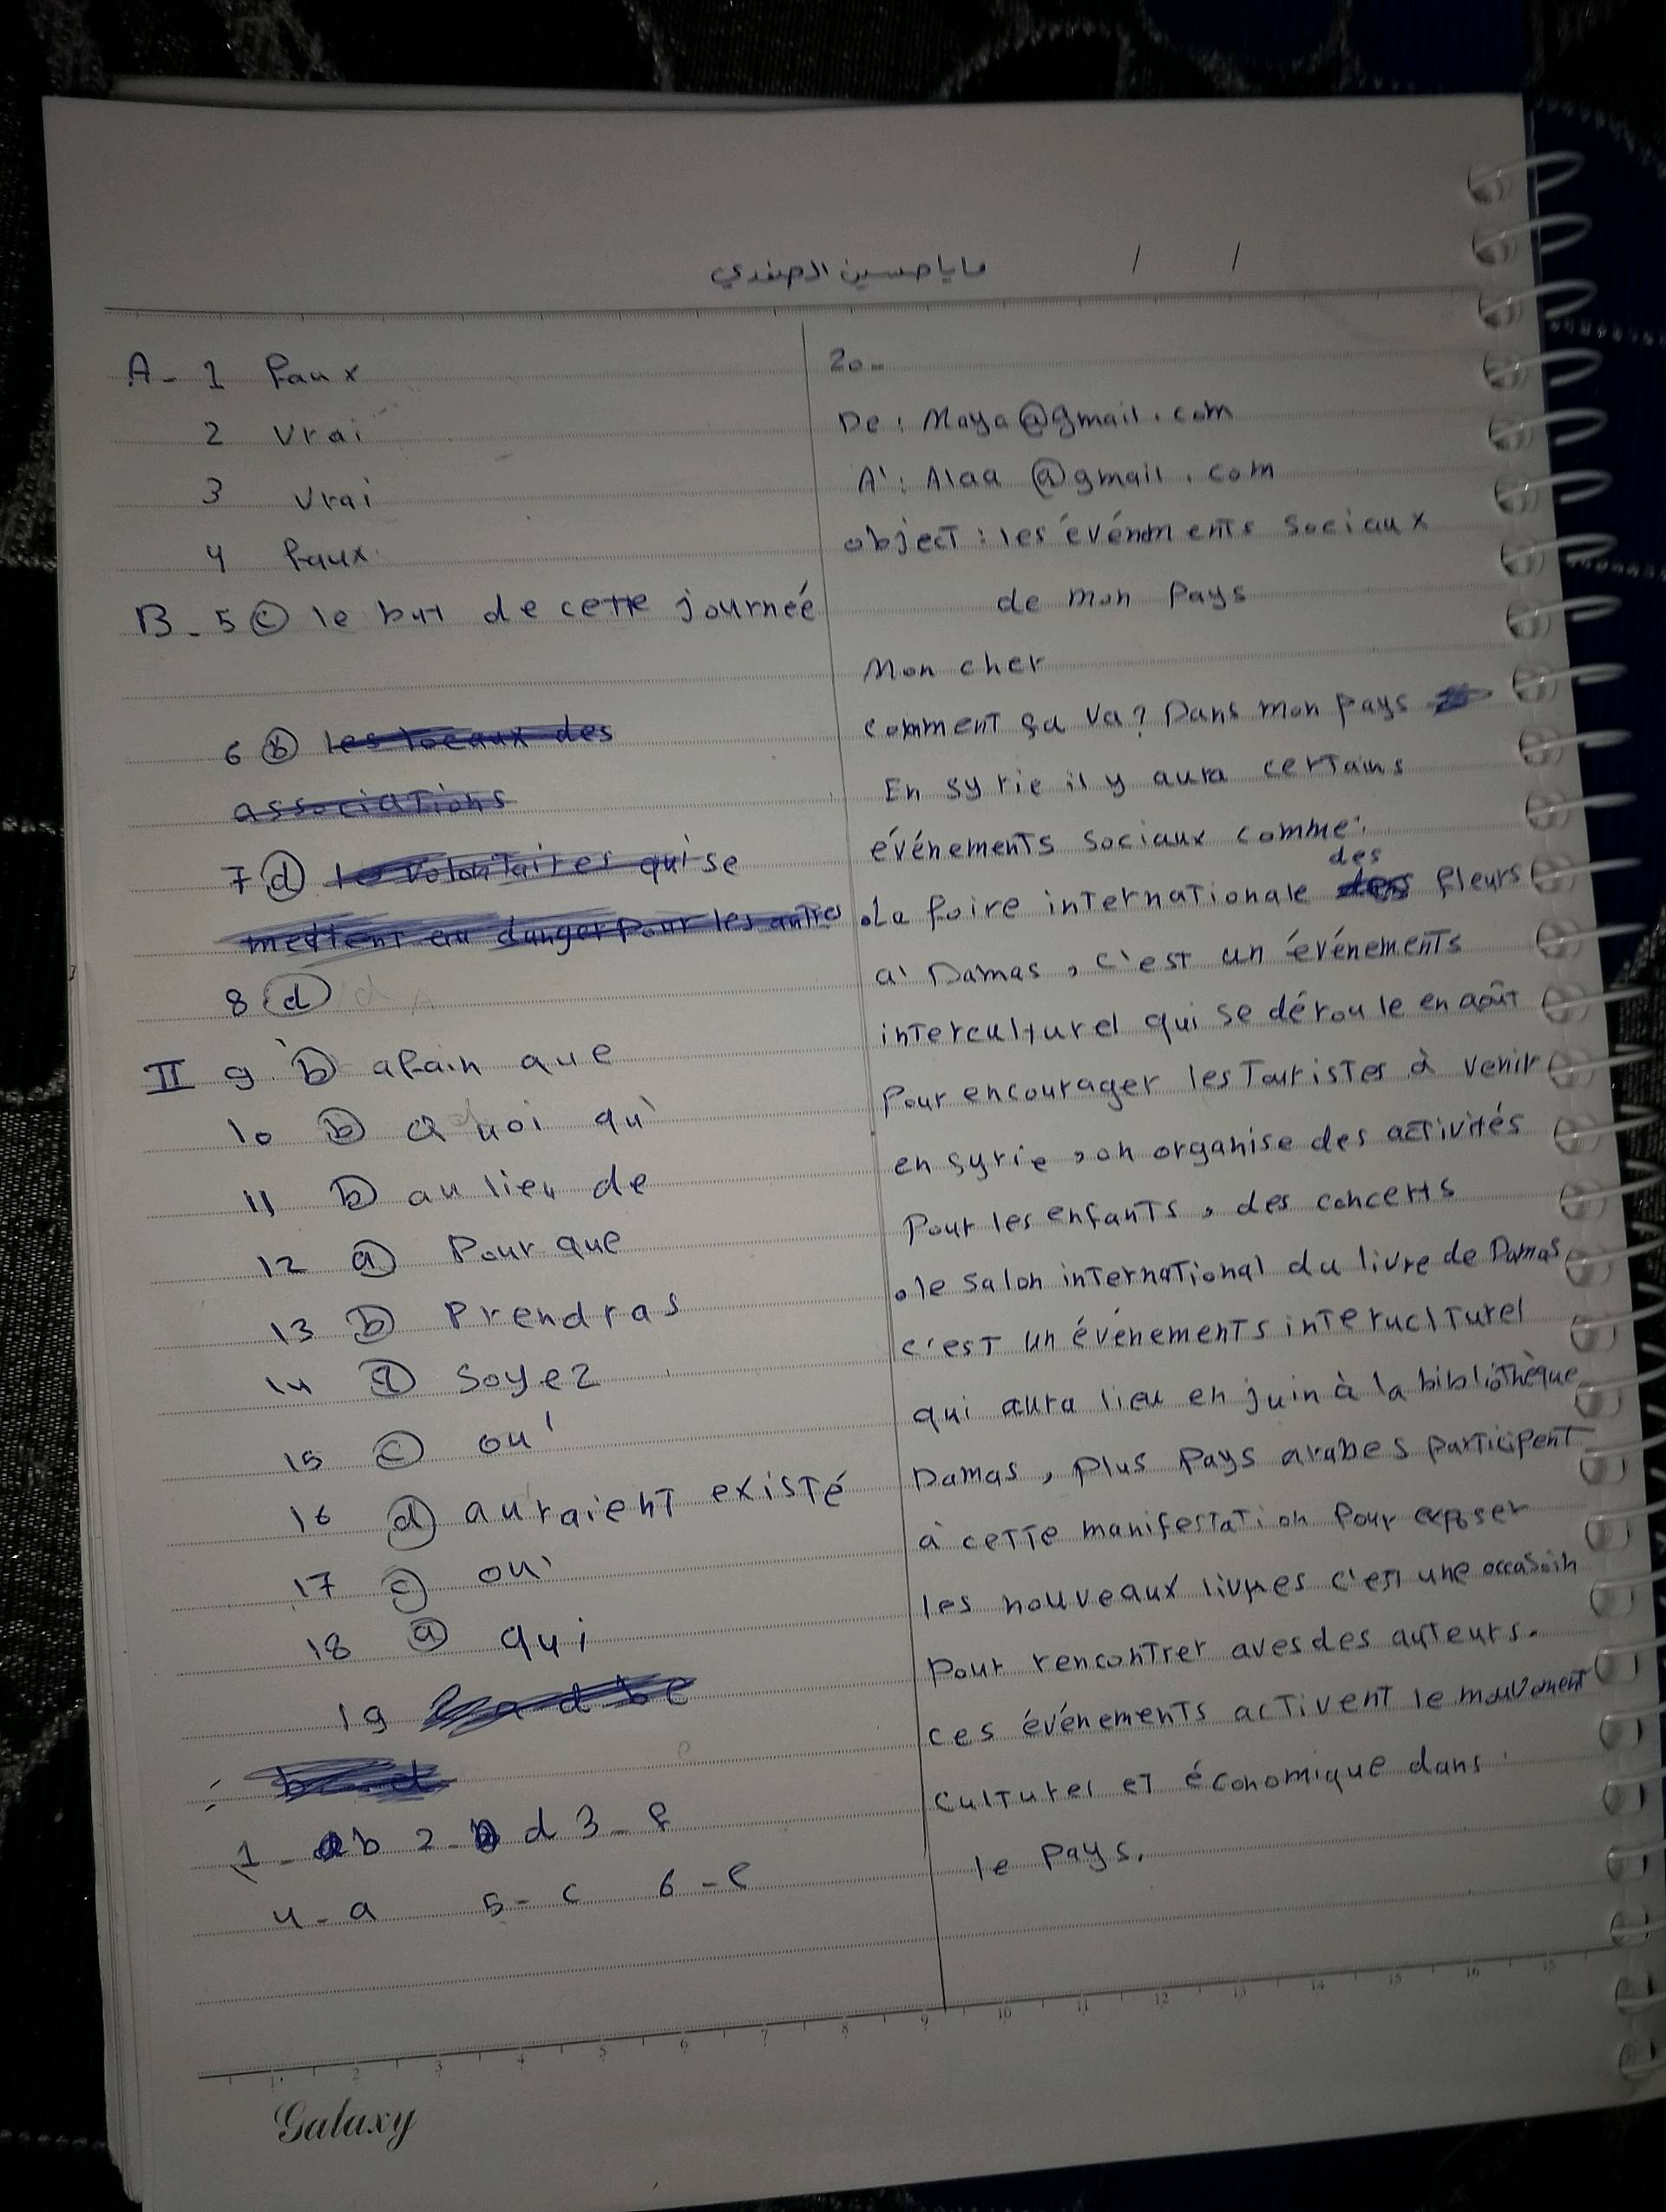 مايا حسين الصفدي / /
A- 1 Faux
2 Vrai
3 Vrai
4 Faux
B- 5 c le but de cette journeé
6 b les locaux des
associations
7 d les volontaires qui se
mettent en danger pour les autres
8 d
II 9 b afain que
10 b Quoi qu'
11 b au lieu de
12 a Pour que
13 b Prendras
14 a Soyez
15 c ou'
16 d auraient existé
17 c ou'
18 a qui
19
1- b 2- d 3- f
4- a 5- c 6- e
20-
De: Maya@gmail.com
A': Alaa @gmail.com
object: les événments sociaux
de mon Pays
Mon cher
comment ça va? Dans mon pays
En syrie il y aura certains
événements sociaux comme:
.La foire internationale des fleurs
a' Damas, c'est un événements
interculturel qui se déroule en août
Pour encourager les Touristes à venir
en syrie, on organise des activités
Pour les enfants, des concerts
.le salon international du livre de Damas
c'est un événements interuclturel
qui aura lieu en juin à la bibliothèque
Damas, plus pays arabes participent
à cette manifestation Pour exposer
les nouveaux livres c'est une occasoin
Pour rencontrer aves des auteurs.
ces événements activent le mouvement
culturel et économique dans
le pays.
1 2 3 4 5 6 7 8 9 10 11 12 13 14 15 16
Galaxy